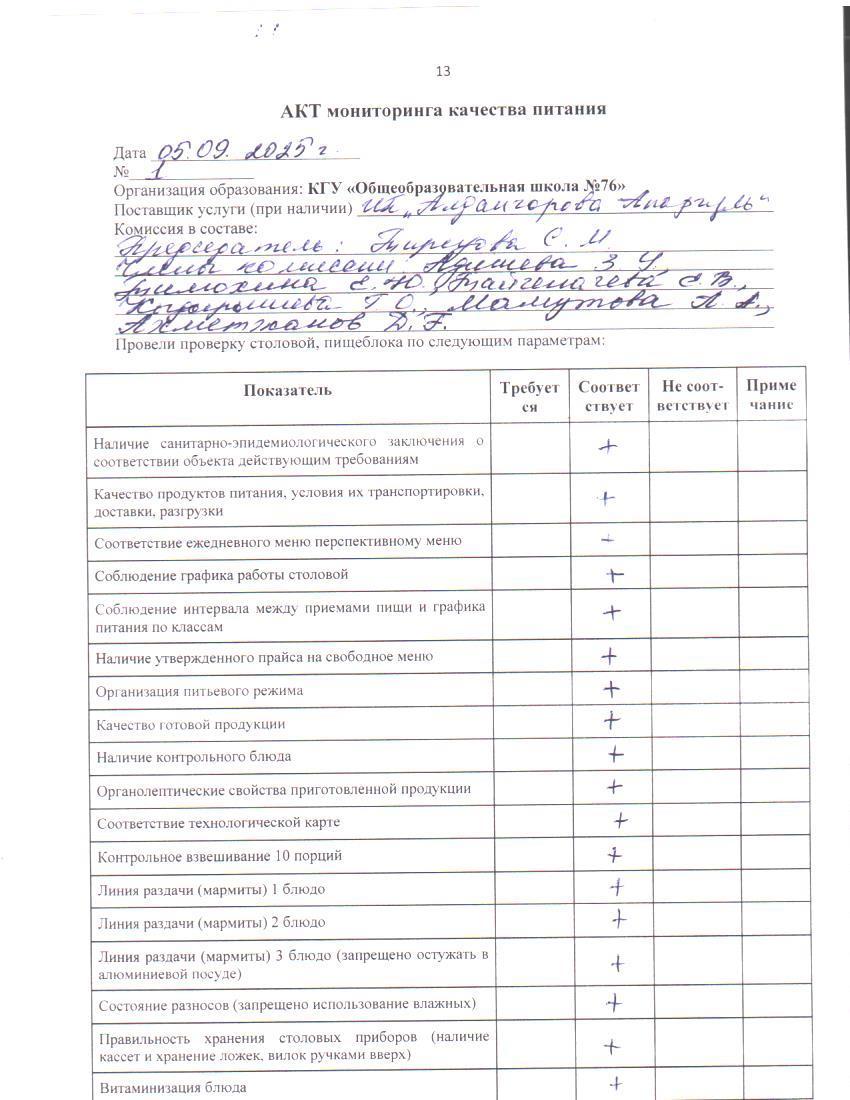 13
АКТ мониторинга качества питания
Дата 05.09. 2025 г.
№ 1
Организация образования: КГУ «Общеобразовательная школа №76»
Поставщик услуги (при наличии) ИП „
Комиссия в составе:
Председатель: С. М.
Члены комиссии: З. У.
Е. Ю., Е. В.,
Г. О., Мамутова Л. А.,
Ахметжанов Д. Г.
Провели проверку столовой, пищеблока по следующим параметрам:
Показатель Требует Соответ Не соот- Приме
ся ствует ветствует чание
Наличие санитарно-эпидемиологического заключения о
соответствии объекта действующим требованиям +
Качество продуктов питания, условия их транспортировки,
доставки, разгрузки +
Соответствие ежедневного меню перспективному меню +
Соблюдение графика работы столовой +
Соблюдение интервала между приемами пищи и графика
питания по классам +
Наличие утвержденного прайса на свободное меню +
Организация питьевого режима +
Качество готовой продукции +
Наличие контрольного блюда +
Органолептические свойства приготовленной продукции +
Соответствие технологической карте +
Контрольное взвешивание 10 порций +
Линия раздачи (мармиты) 1 блюдо +
Линия раздачи (мармиты) 2 блюдо +
Линия раздачи (мармиты) 3 блюдо (запрещено остужать в
алюминиевой посуде) +
Состояние разносов (запрещено использование влажных) +
Правильность хранения столовых приборов (наличие
кассет и хранение ложек, вилок ручками вверх) +
Витаминизация блюда +